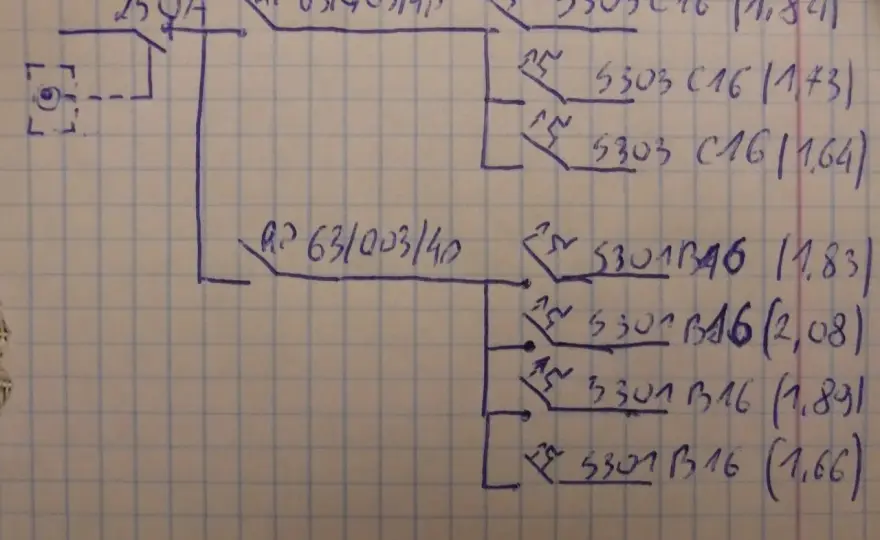 S303 C16 (1,84)
S303 C16 (1,73)
S303 C16 (1,64)
63/003/40 S301 B16 (1,83)
S301 B16 (2,08)
S301 B16 (1,89)
S301 B16 (1,66)